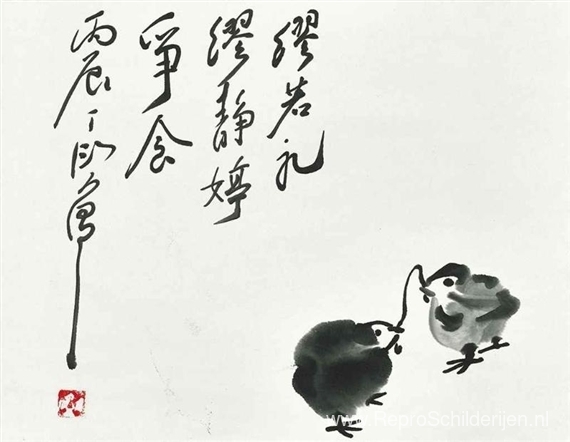 繆若礼
繆靜婷
爭食
丙辰丁衍庸
www.ReproSchilderijen.nl